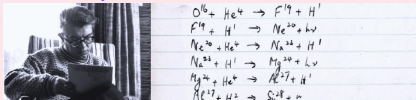 O¹⁶ + He⁴ → F¹⁹ + H¹
F¹⁹ + H¹ → Ne²⁰ + hν
Ne²⁰ + He⁴ → Na²³ + H¹
Na²³ + H¹ → Mg²⁴ + hν
Mg²⁴ + He⁴ → Al²⁷ + H¹